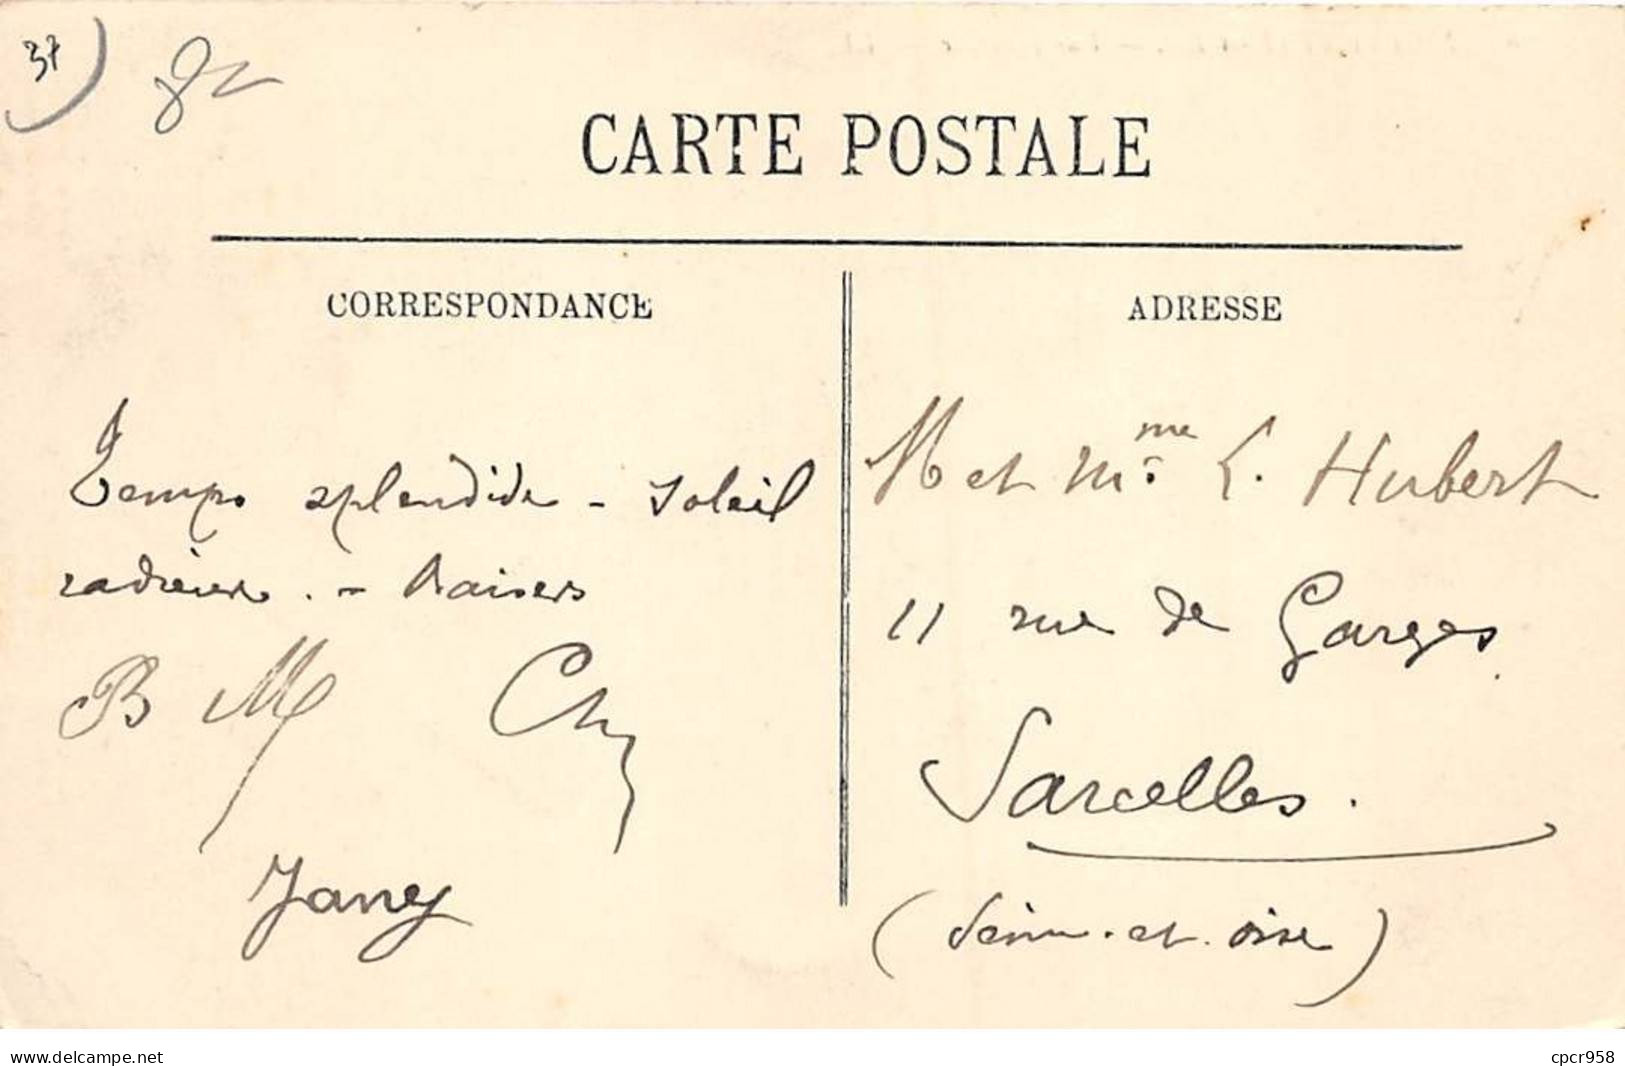 37
CARTE POSTALE
CORRESPONDANCE
Temps splendide - Soleil
radieux. - Baisers
B M Ch
Jany
ADRESSE
M et Mme L. Hubert
11 rue de Garges.
Sarcelles.
(Seine-et-Oise)
www.delcampe.net
cpcr958